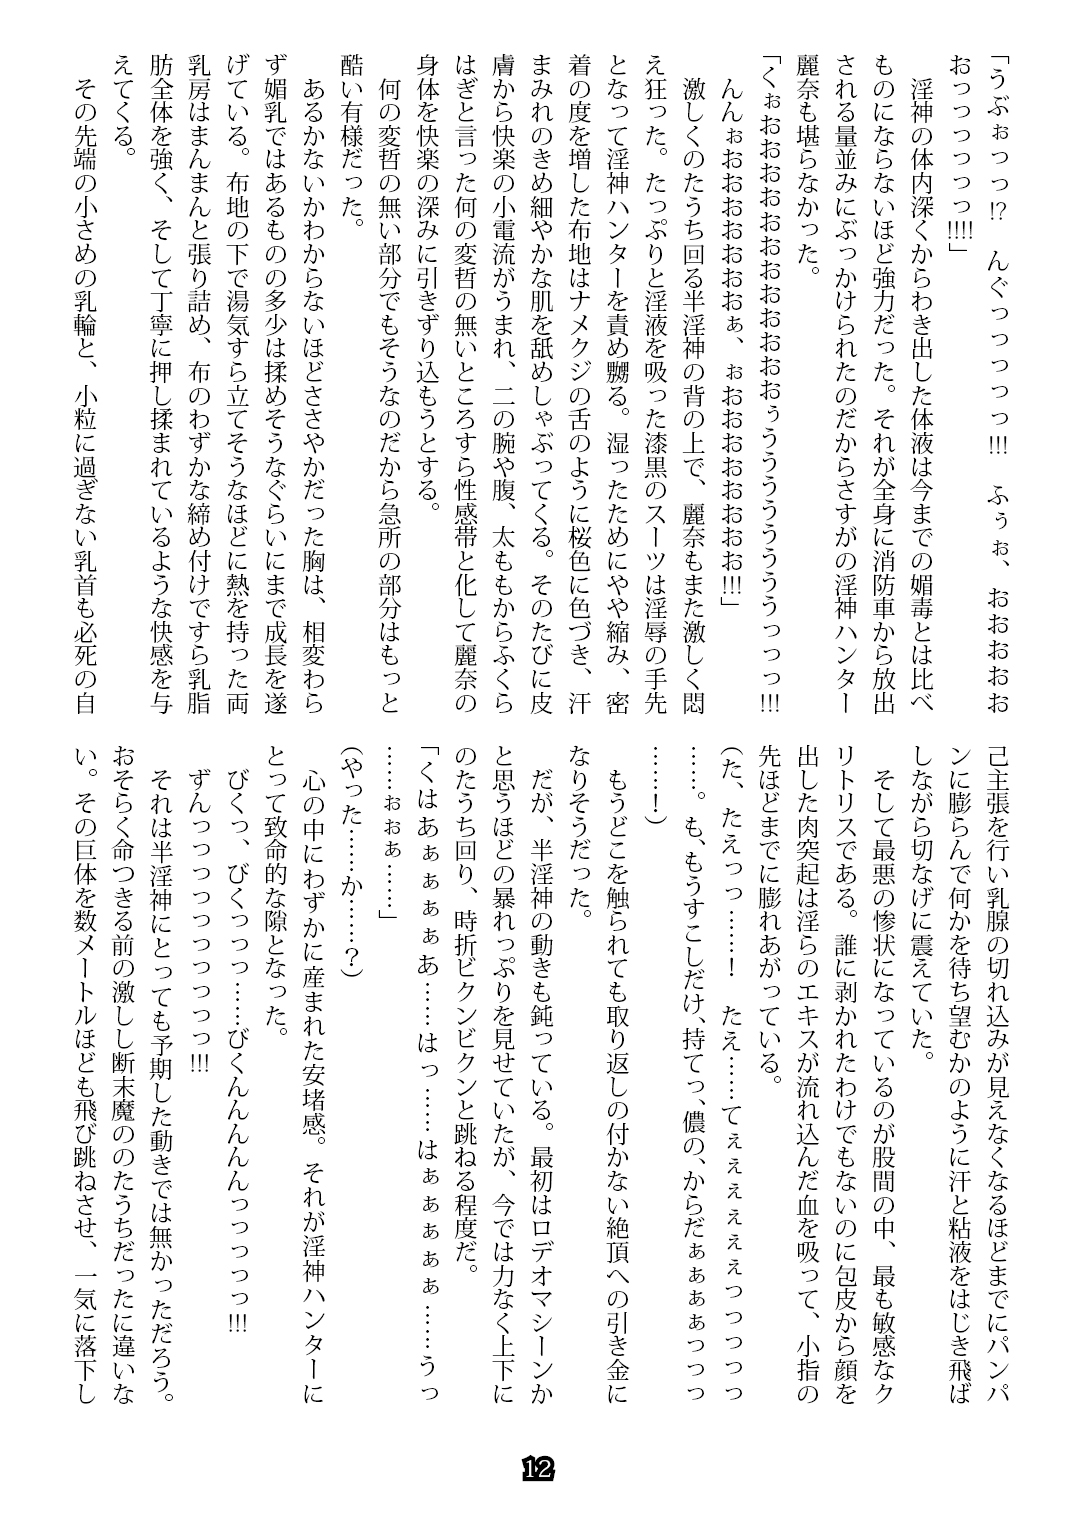 「うぶぉっっ!?　んぐっっっっっ!!!　ふぅぉ、おおおおお
おっっっっっっ!!!!」
　淫神の体内深くからわき出した体液は今までの媚毒とは比べ
ものにならないほど強力だった。それが全身に消防車から放出
される量並みにぶっかけられたのだからさすがの淫神ハンター
麗奈も堪らなかった。
「くぉおおおおおおおおおおおおぅうううううううっっっ!!!
　んんぉおおおおおおおぁ、ぉおおおおおおおおお!!!」
　激しくのたうち回る半淫神の背の上で、麗奈もまた激しく悶
え狂った。たっぷりと淫液を吸った漆黒のスーツは淫辱の手先
となって淫神ハンターを責め嬲る。湿ったためにやや縮み、密
着の度を増した布地はナメクジの舌のように桜色に色づき、汗
まみれのきめ細やかな肌を舐めしゃぶってくる。そのたびに皮
膚から快楽の小電流がうまれ、二の腕や腹、太ももからふくら
はぎと言った何の変哲の無いところすら性感帯と化して麗奈の
身体を快楽の深みに引きずり込もうとする。
　何の変哲の無い部分でもそうなのだから急所の部分はもっと
酷い有様だった。
　あるかないかわからないほどささやかだった胸は、相変わら
ず媚乳ではあるものの多少は揉めそうなぐらいにまで成長を遂
げている。布地の下で湯気すら立てそうなほどに熱を持った両
乳房はまんまんと張り詰め、布のわずかな締め付けですら乳脂
肪全体を強く、そして丁寧に押し揉まれているような快感を与
えてくる。
　その先端の小さめの乳輪と、小粒に過ぎない乳首も必死の自
己主張を行い乳腺の切れ込みが見えなくなるほどまでにパンパ
ンに膨らんで何かを待ち望むかのように汗と粘液をはじき飛ば
しながら切なげに震えていた。
　そして最悪の惨状になっているのが股間の中、最も敏感なク
リトリスである。誰に剥かれたわけでもないのに包皮から顔を
出した肉突起は淫らのエキスが流れ込んだ血を吸って、小指の
先ほどまでに膨れあがっている。
(た、たえっっ……!　たえ……てぇぇぇぇぇぇっっっっっ
……。も、もうすこしだけ、持てっ、儂の、からだぁぁぁぁっっっ
……!)
　もうどこを触られても取り返しの付かない絶頂への引き金に
なりそうだった。
　だが、半淫神の動きも鈍っている。最初はロデオマシーンか
と思うほどの暴れっぷりを見せていたが、今では力なく上下に
のたうち回り、時折ビクンビクンと跳ねる程度だ。
「くはあぁぁぁぁあ……はっ……はぁぁぁぁぁ……うっ
……ぉぉぁ……」
(やった……か……?)
　心の中にわずかに産まれた安堵感。それが淫神ハンターに
とって致命的な隙となった。
　びくっ、びくっっっ……びくんんんんんっっっっっ!!!
　ずんっっっっっっっっっっ!!!
　それは半淫神にとっても予期した動きでは無かっただろう。
おそらく命つきる前の激しし断末魔ののたうちだったに違いな
い。その巨体を数メートルほども飛び跳ねさせ、一気に落下し
12